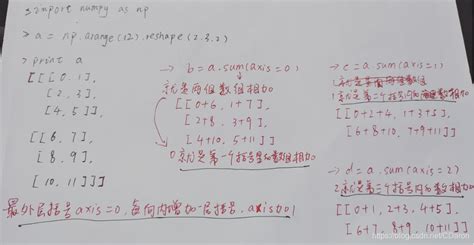 > import numpy as np
> a = np.arange(12).reshape(2.3.2)
> print a
[[[0.1],
[2,3],
[4,5]],
[[6,7],
[8,9],
[10,11]]]
最外层括号axis=0,每向内增加一层括号,axis+1
→ b=a.sum(axis=0)
就是两组数组相加
[[0+6, 1+7],
[2+8, 3+9],
[4+10, 5+11]]
0就是第一个括号里的数组相加
→ c=a.sum(axis=1)
1就是第二个括号内的数组相加
[[0+2+4, 1+3+5],
[6+8+10, 7+9+11]]
→ d=a.sum(axis=2)
2就是第三个括号内的数相加
[[0+1, 2+3, 4+5],
[6+7, 8+9, 10+11]]